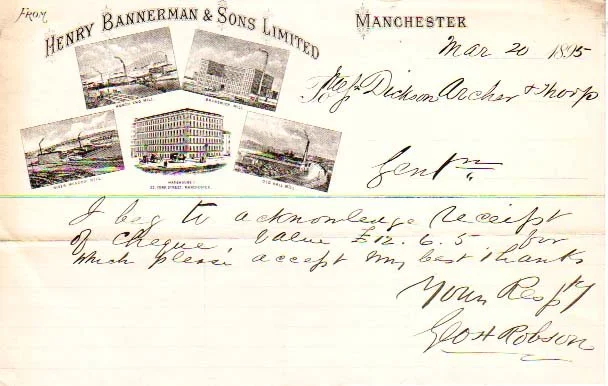 From
Henry Bannerman & Sons Limited
Manchester
Mar 20 1895
To Messrs Dickson Archer & Thorp
Brunswick Mill
Warehouse
33, York Street, Manchester
Old Hall Mill
Gentn
I beg to acknowledge receipt
of cheque, value £12. 6. 5 for
which please accept my best thanks
Yours Respty
Geo H Robson